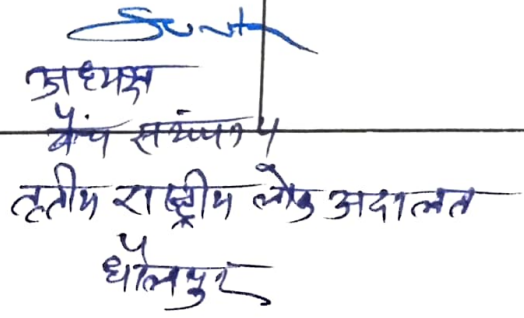 अध्यक्ष
बैंच संख्या 4
तृतीय राष्ट्रीय लोक अदालत
धौलपुर